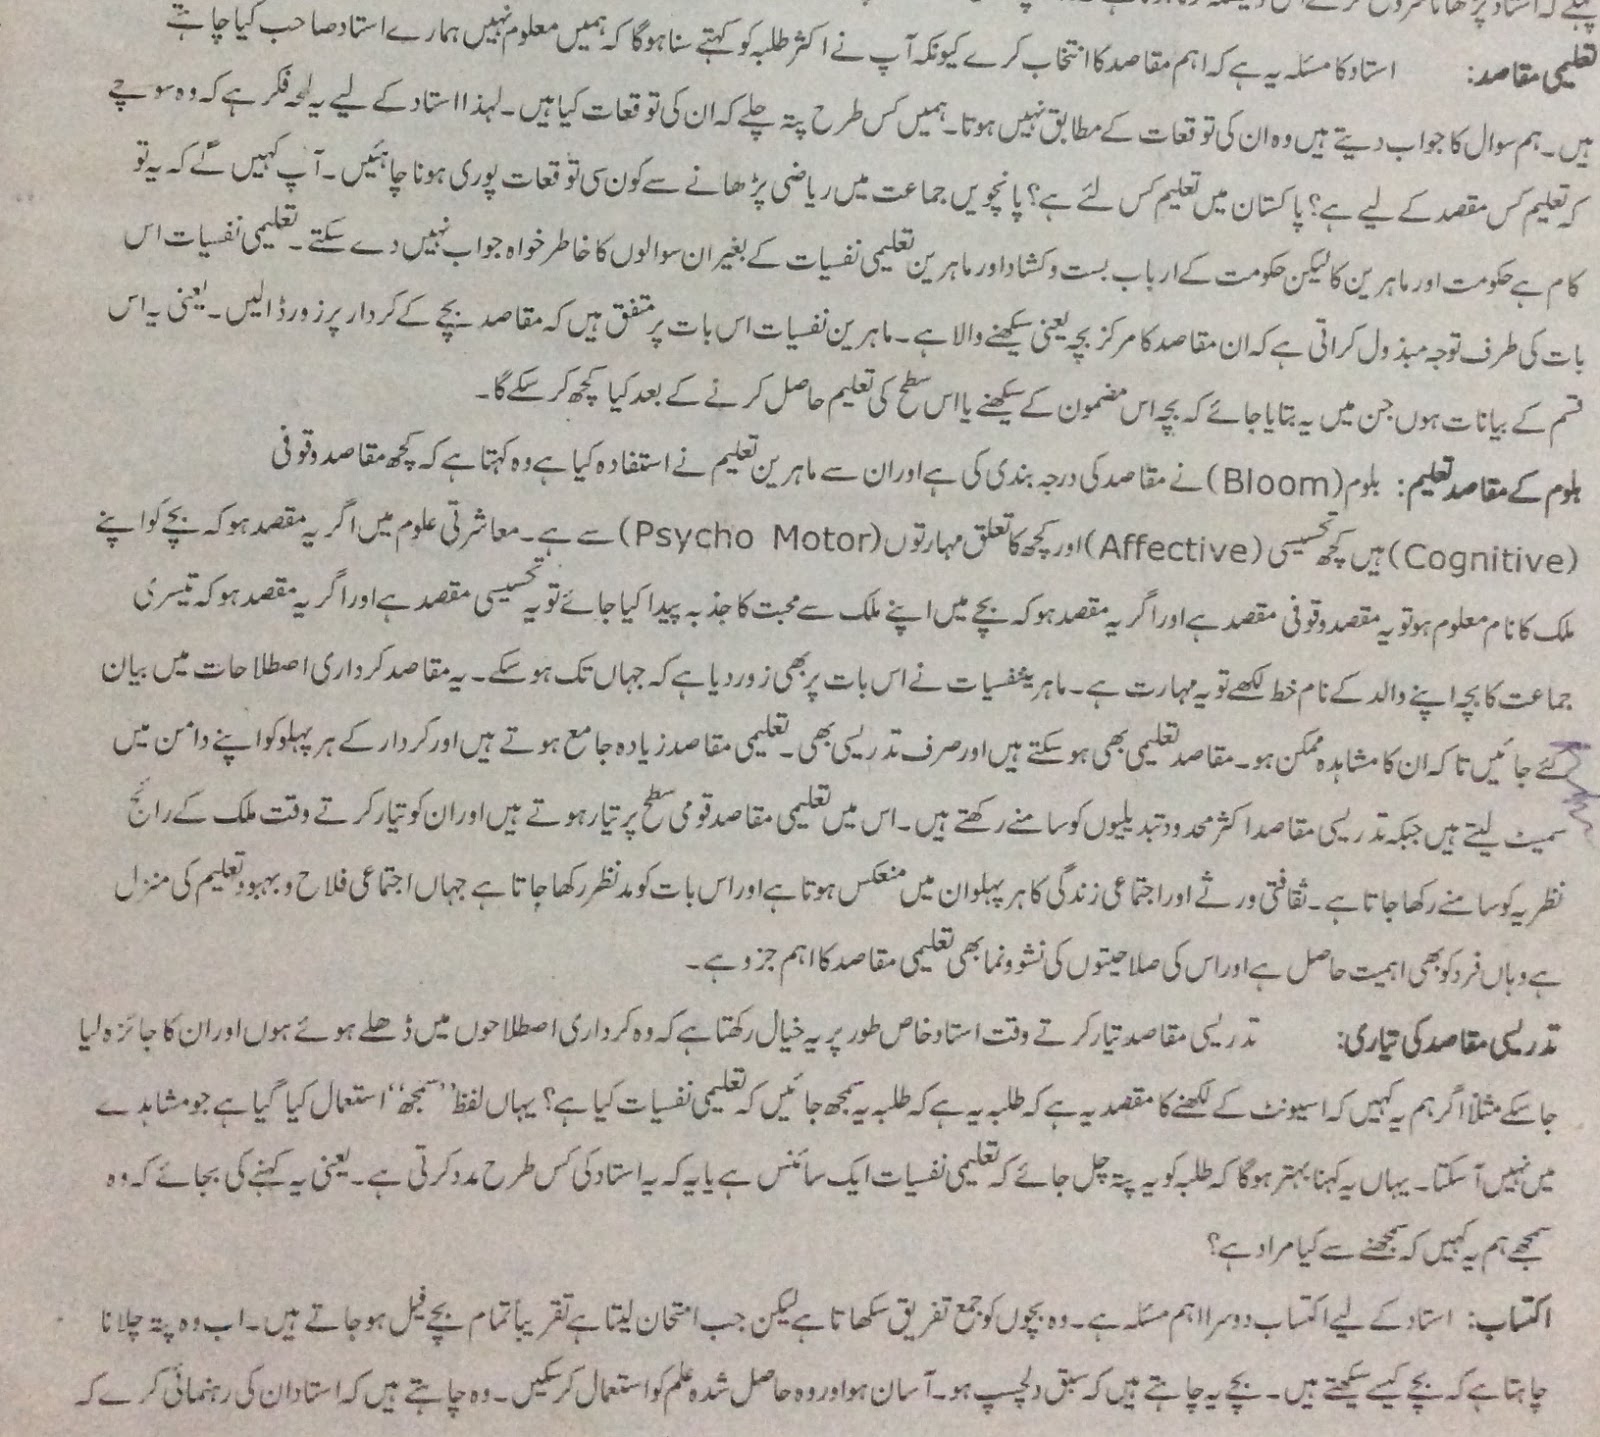 پہلے کہ استاد پڑھانا شروع کرے اس
تعلیمی مقاصد: استاد کا مسئلہ یہ ہے کہ اہم مقاصد کا انتخاب کرے کیونکہ آپ نے اکثر طلبہ کو کہتے سنا ہوگا کہ ہمیں معلوم نہیں ہمارے استاد صاحب کیا چاہتے
ہیں۔ ہم سوال کا جواب دیتے ہیں وہ ان کی توقعات کے مطابق نہیں ہوتا۔ ہمیں کس طرح پتہ چلے کہ ان کی توقعات کیا ہیں۔ لہذا استاد کے لیے یہ لمحہ فکر ہے کہ وہ سوچے
کہ تعلیم کس مقصد کے لیے ہے؟ پاکستان میں تعلیم کس لئے ہے؟ پانچویں جماعت میں ریاضی پڑھانے سے کون سی توقعات پوری ہونا چاہئیں۔ آپ کہیں گے کہ یہ تو
کام ہے حکومت اور ماہرین کا لیکن حکومت کے ارباب بست و کشاد اور ماہرین تعلیمی نفسیات کے بغیر ان سوالوں کا خاطر خواہ جواب نہیں دے سکتے۔ تعلیمی نفسیات اس
بات کی طرف توجہ مبذول کراتی ہے کہ ان مقاصد کا مرکز بچہ یعنی سیکھنے والا ہے۔ ماہرین نفسیات اس بات پر متفق ہیں کہ مقاصد بچے کے کردار پر زور ڈالیں۔ یعنی یہ اس
قسم کے بیانات ہوں جن میں یہ بتایا جائے کہ بچہ اس مضمون کے سیکھنے یا اس سطح کی تعلیم حاصل کرنے کے بعد کیا کچھ کر سکے گا۔
بلوم کے مقاصد تعلیم: بلوم (Bloom) نے مقاصد کی درجہ بندی کی ہے اور ان سے ماہرین تعلیم نے استفادہ کیا ہے وہ کہتا ہے کہ کچھ مقاصد وقوفی
(Cognitive) ہیں کچھ تحسیسی (Affective) اور کچھ کا تعلق مہارتوں (Psycho Motor) سے ہے۔ معاشرتی علوم میں اگر یہ مقصد ہو کہ بچے کو اپنے
ملک کا نام معلوم ہو تو یہ مقصد وقوفی مقصد ہے اور اگر یہ مقصد ہو کہ بچے میں اپنے ملک سے محبت کا جذبہ پیدا کیا جائے تو یہ تحسیسی مقصد ہے اور اگر یہ مقصد ہو کہ تیسری
جماعت کا بچہ اپنے والد کے نام خط لکھے تو یہ مہارت ہے۔ ماہرین نفسیات نے اس بات پر بھی زور دیا ہے کہ جہاں تک ہو سکے۔ یہ مقاصد کرداری اصطلاحات میں بیان
کئے جائیں تاکہ ان کا مشاہدہ ممکن ہو۔ مقاصد تعلیمی بھی ہو سکتے ہیں اور صرف تدریسی بھی۔ تعلیمی مقاصد زیادہ جامع ہوتے ہیں اور کردار کے ہر پہلو کو اپنے دامن میں
سمیٹ لیتے ہیں جبکہ تدریسی مقاصد اکثر محدود تبدیلیوں کو سامنے رکھتے ہیں۔ اس میں تعلیمی مقاصد قومی سطح پر تیار ہوتے ہیں اور ان کو تیار کرتے وقت ملک کے رائج
نظریہ کو سامنے رکھا جاتا ہے۔ ثقافتی ورثے اور اجتماعی زندگی کا ہر پہلو ان میں منعکس ہوتا ہے اور اس بات کو مدنظر رکھا جاتا ہے جہاں اجتماعی فلاح و بہبود تعلیم کی منزل
ہے وہاں فرد کو بھی اہمیت حاصل ہے اور اس کی صلاحیتوں کی نشوونما بھی تعلیمی مقاصد کا اہم جزو ہے۔
تدریسی مقاصد کی تیاری: تدریسی مقاصد تیار کرتے وقت استاد خاص طور پر یہ خیال رکھتا ہے کہ وہ کرداری اصطلاحوں میں ڈھلے ہوئے ہوں اور ان کا جائزہ لیا
جا سکے مثلاً اگر ہم یہ کہیں کہ اس یونٹ کے لکھنے کا مقصد یہ ہے کہ طلبہ یہ ہے کہ طلبہ یہ سمجھ جائیں کہ تعلیمی نفسیات کیا ہے؟ یہاں لفظ ”سمجھ“ استعمال کیا گیا ہے جو مشاہدے
میں نہیں آ سکتا۔ یہاں یہ کہنا بہتر ہوگا کہ طلبہ کو یہ پتہ چل جائے کہ تعلیمی نفسیات ایک سائنس ہے یا یہ کہ یہ استاد کی کس طرح مدد کرتی ہے۔ یعنی یہ کہنے کی بجائے کہ وہ
سمجھے ہم یہ کہیں کہ سمجھنے سے کیا مراد ہے؟
اکتساب: استاد کے لیے اکتساب دوسرا اہم مسئلہ ہے۔ وہ بچوں کو جمع تفریق سکھاتا ہے لیکن جب امتحان لیتا ہے تقریباً تمام بچے فیل ہو جاتے ہیں۔ اب وہ پتہ چلانا
چاہتا ہے کہ بچے کیسے سیکھتے ہیں۔ بچے یہ چاہتے ہیں کہ سبق دلچسپ ہو۔ آسان ہو اور وہ حاصل شدہ علم کو استعمال کر سکیں۔ وہ چاہتے ہیں کہ استاد ان کی رہنمائی کرے کہ